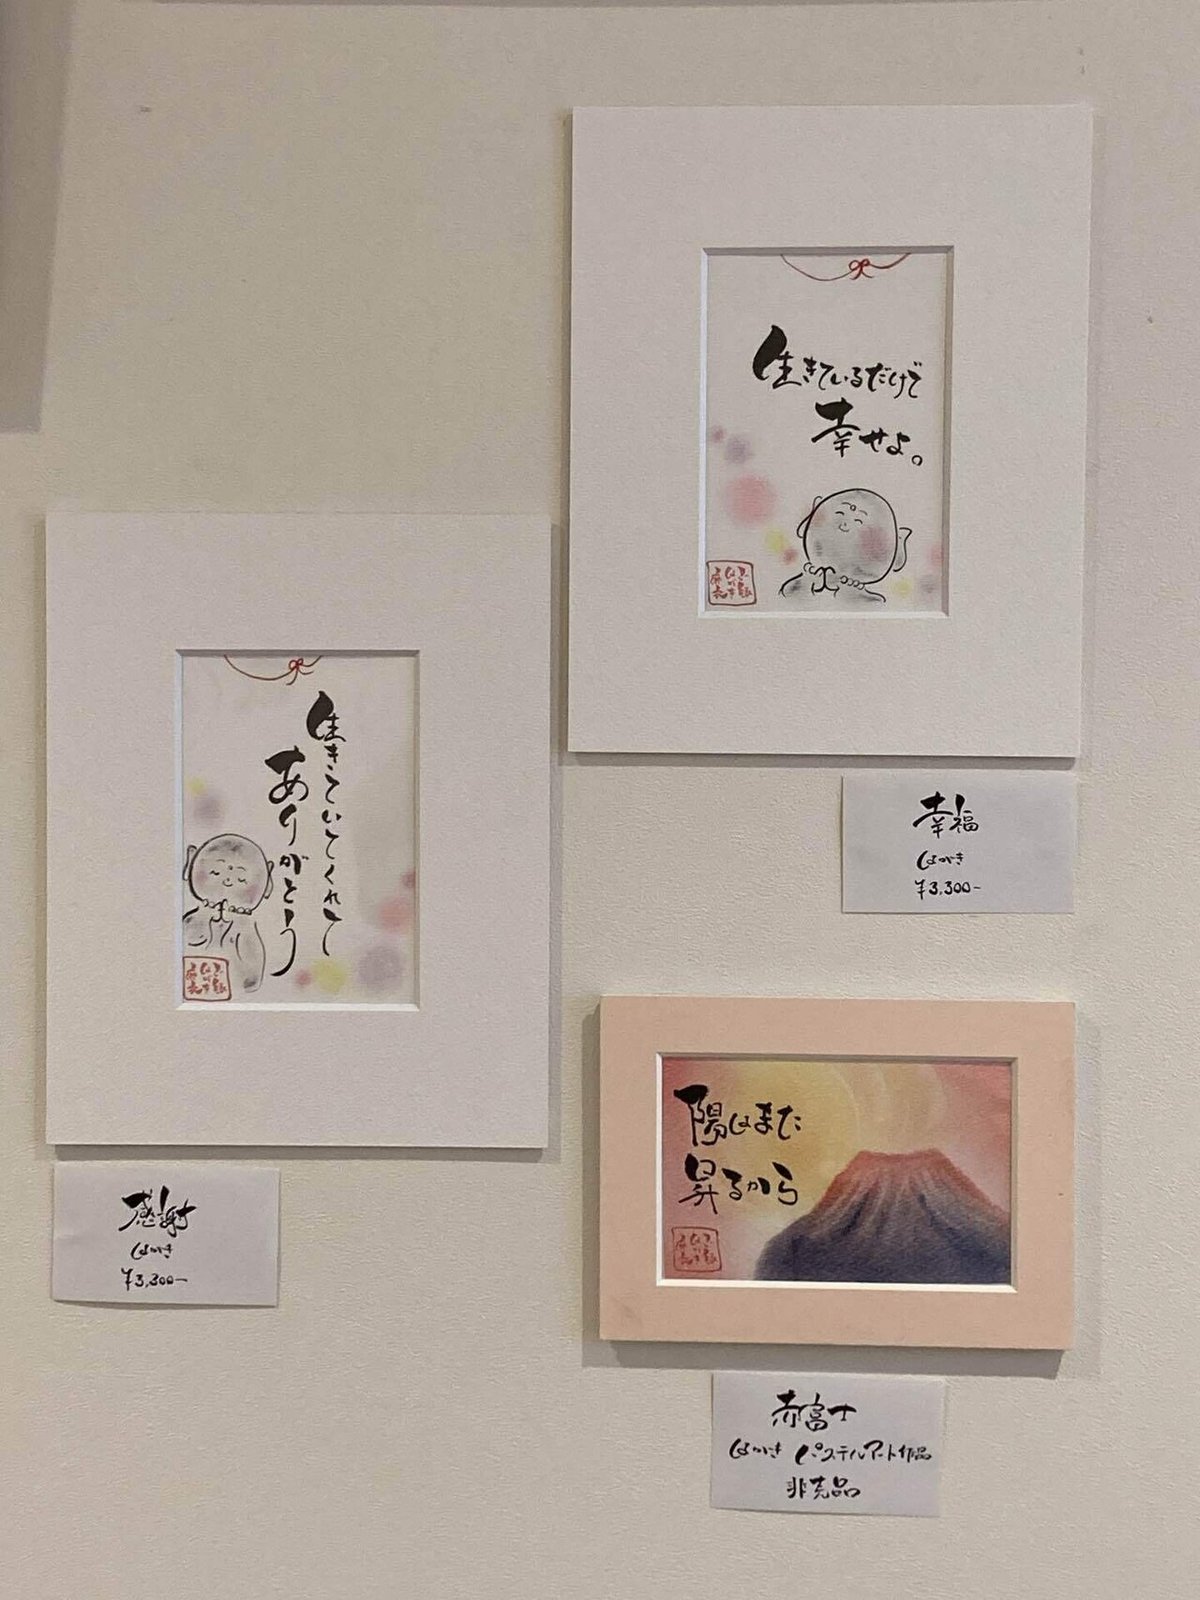 生きているだけで
幸せよ。
幸福
はがき
¥3,300-
生きていてくれて
ありがとう
感謝
はがき
¥3,300-
陽はまた
昇るから
赤富士
はがき パステルアート作品
非売品